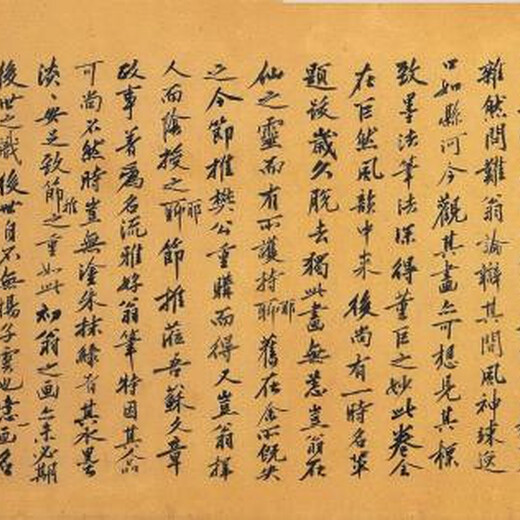 雜然問難翁論辯其間風神竦逸
口如縣河今觀其畫亦可想見其標
致墨法筆法深得董巨之妙此卷全
在巨然風韻中來後尚有一時名輩
題跋歲久脫去獨此畫無恙豈翁在
仙之靈而有所護持耶舊在余所既失
之今節推樊公重購而得又豈翁擇
人而陰授之耶節推蒞吾蘇文章
政事著為名流雅好翁筆特因其人品
可尚不然時豈無塗朱抹綠者其水墨
淡淡安足致節推之重如此初翁之画亦未必期
後世之識後世自不無揚子雲也噫画名